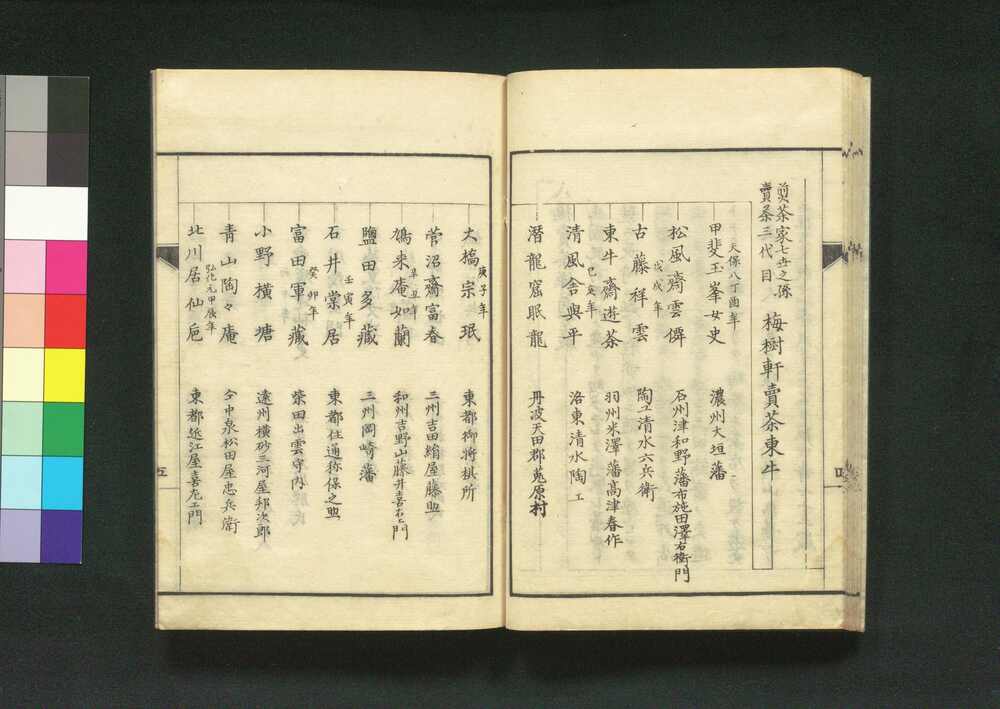 煎茶家七世之孫
賣茶三代目
梅樹軒賣茶東牛
天保八丁酉年
甲斐玉峯女史 濃州大垣藩
松風齋雲僊 石州津和野藩布施田澤右衛門
戊戌年
古藤祥雲 陶工清水六兵衛
己亥年
東牛齋遊茶 羽州米澤藩高津春作
清風舎與平 洛東清水陶工
潛龍窟眠龍 丹波天田郡莵原村
庚子年
大橋宗珉 東都御将棋所
菅沼齋富春 三州吉田絹屋藤助
辛丑年
鳩来庵如蘭 和州吉野山藤井喜右衛門
鹽田多藏 三州岡崎藩
壬寅年
石井棠居 東都住通称保之助
癸卯年
富田軍藏 柴田出雲守内
小野横塘 遠州横砂三河屋邦次郎
青山陶々庵 仝中泉松田屋忠兵衛
弘化元甲辰年
北川居仙巵 東都近江屋喜左エ門
五